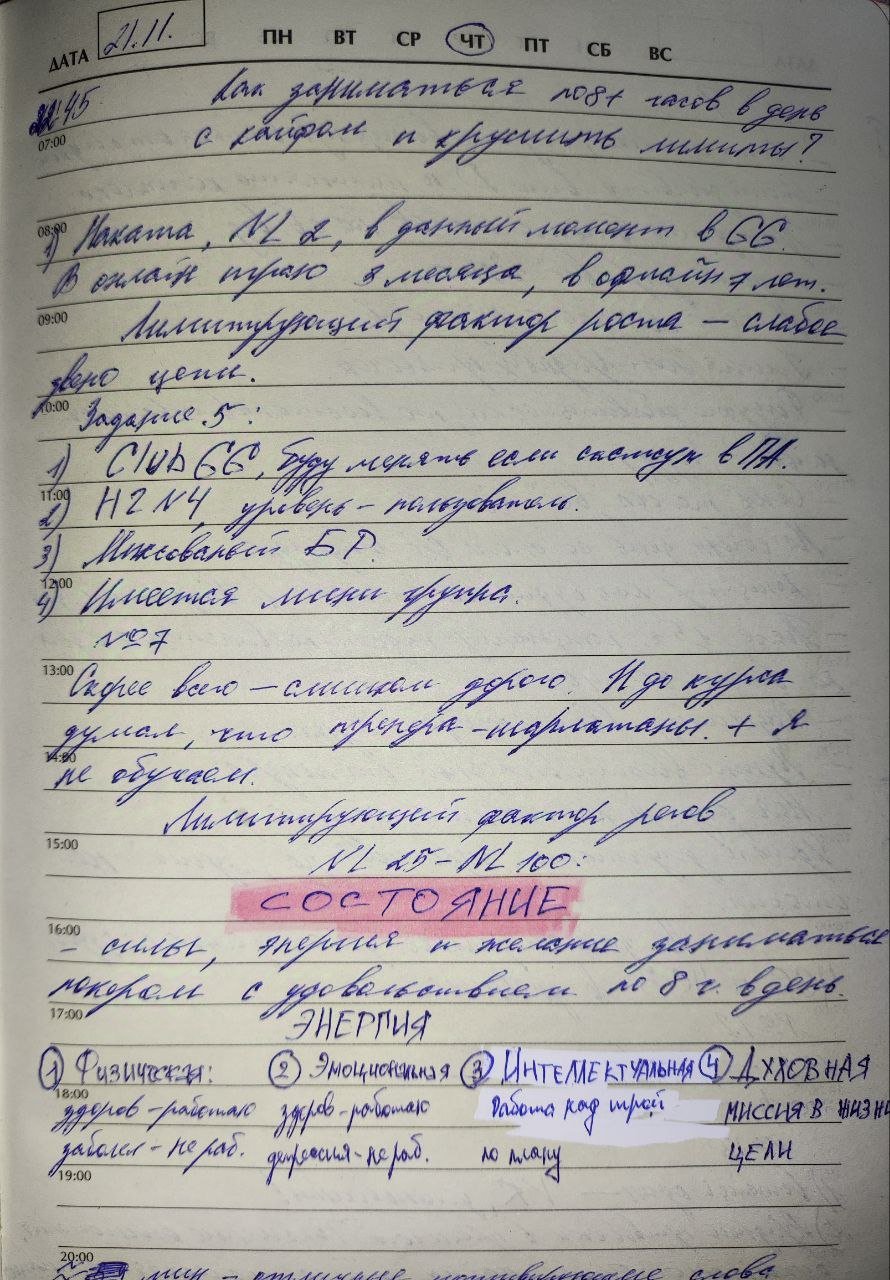 ДАТА 21.11. ПН ВТ СР ЧТ ПТ СБ ВС
22:45 Как заниматься по 8+ часов в день
07:00 с кайфом и крушить лимиты?
08:00
1) Наката, NL 2, в данный момент в GG.
В онлайн играю 3 месяца, в офлайн 7 лет.
09:00
Лимитирующий фактор роста – слабое
звено цепи.
10:00
Задание 5:
1) Club GG, буду менять если скажут в ПА.
11:00
2) H2N4, уровень – пользователь.
3) Миксованый БР.
12:00
4) Имеется мини группа.
№7
13:00
Скорее всего – слишком дорого. И до курса
думал, что тренера – шарлатаны. + Я
14:00
не обучаем.
Лимитирующий фактор регов
15:00
NL 25 – NL 100:
СОСТОЯНИЕ
16:00
– силы, энергия и желание заниматься
покером с удовольствием по 8 ч. в день.
17:00
ЭНЕРГИЯ
1 Физическая: 2 Эмоциональная 3 Интеллектуальная 4 Духовная
18:00
здоров – работаю здоров – работаю Работа над игрой миссия в жизни
заболел – не раб. депрессия – не раб. по плану цели
19:00
20:00
мин – отличные мотивирующие слова